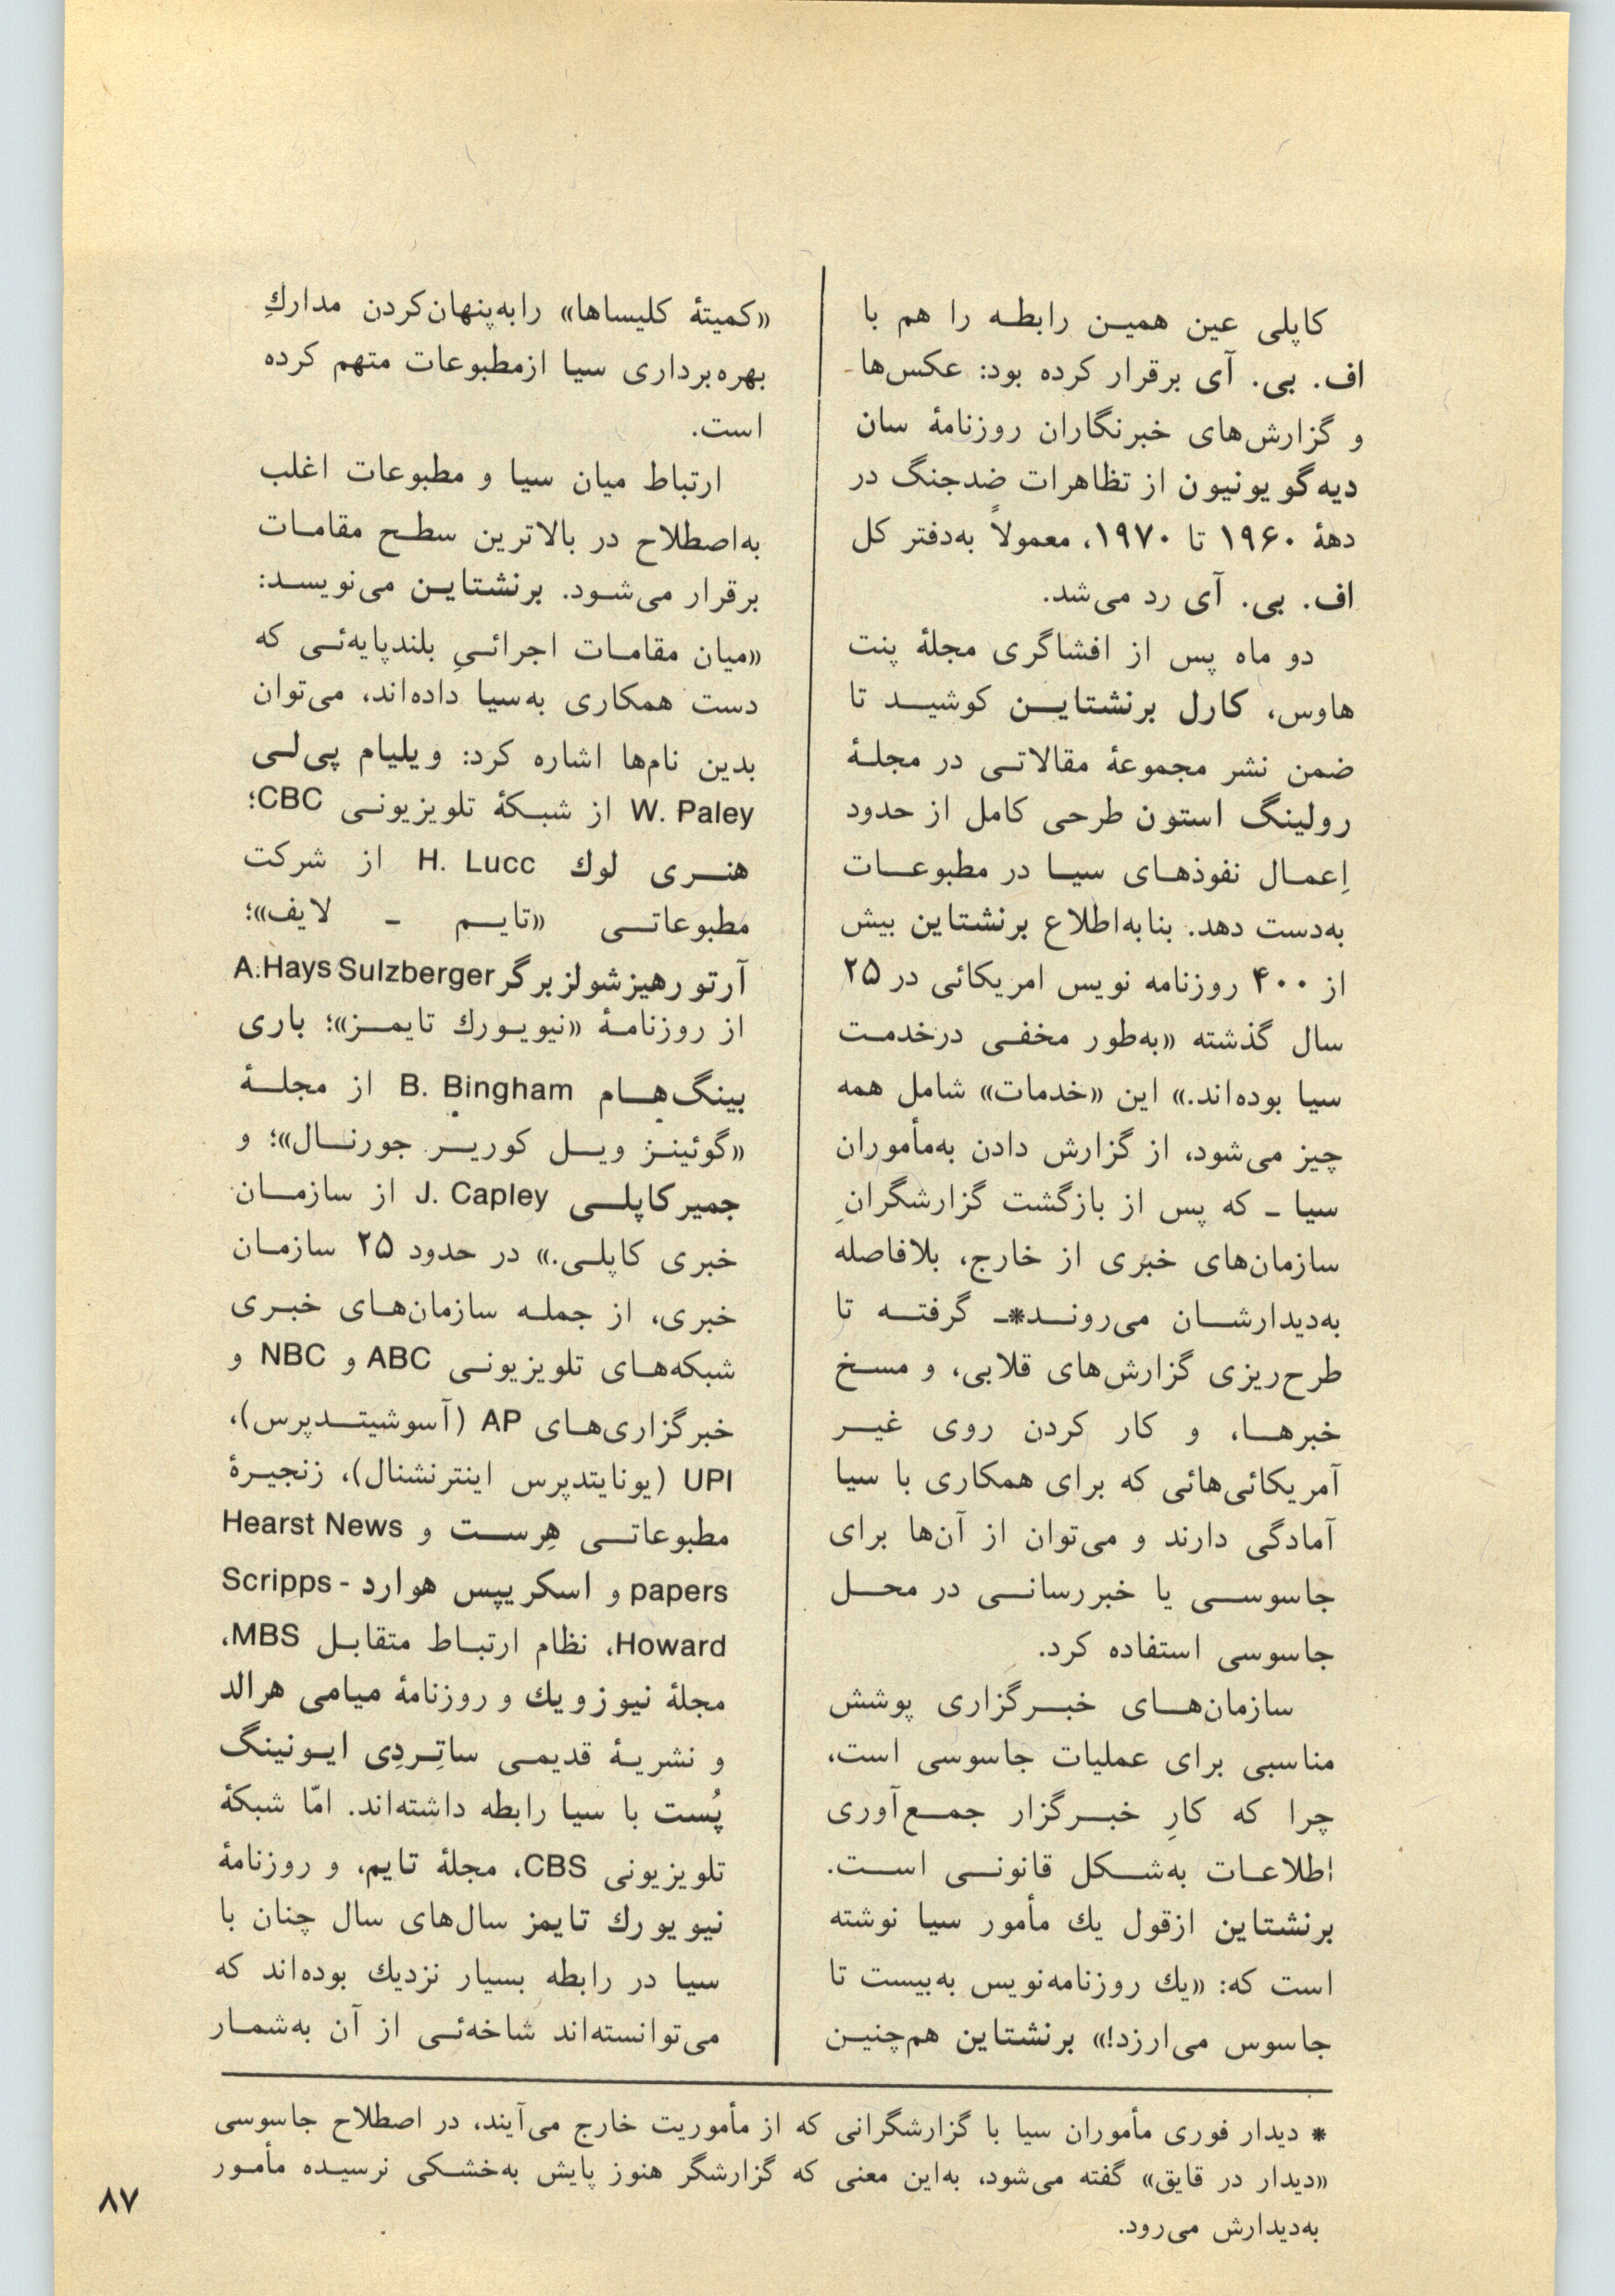 کاپلی عین همین رابطه را هم با
اف. بی. آی برقرار کرده بود: عکس‌ها
و گزارش‌های خبرنگاران روزنامهٔ سان
دیه‌گو یونیون از تظاهرات ضدجنگ در
دههٔ ۱۹۶۰ تا ۱۹۷۰، معمولاً به‌دفتر کل
اف. بی. آی رد می‌شد.
دو ماه پس از افشاگری مجلهٔ پنت
هاوس، کارل برنشتاین کوشید تا
ضمن نشر مجموعهٔ مقالاتی در مجلهٔ
رولینگ استون طرحی کامل از حدود
اِعمال نفوذهای سیا در مطبوعات
به‌دست دهد. بنابه‌اطلاع برنشتاین بیش
از ۴۰۰ روزنامه نویس امریکائی در ۲۵
سال گذشته «به‌طور مخفی درخدمت
سیا بوده‌اند.» این «خدمات» شامل همه
چیز می‌شود، از گزارش دادن به‌مأموران
سیا ـ که پس از بازگشت گزارشگرانِ
سازمان‌های خبری از خارج، بلافاصله
به‌دیدارشان می‌روند*ـ گرفته تا
طرح‌ریزی گزارش‌های قلابی، و مسخ
خبرها، و کار کردن روی غیر
آمریکائی‌هائی که برای همکاری با سیا
آمادگی دارند و می‌توان از آن‌ها برای
جاسوسی یا خبررسانی در محل
جاسوسی استفاده کرد.
سازمان‌های خبرگزاری پوشش
مناسبی برای عملیات جاسوسی است،
چرا که کارِ خبرگزار جمع‌آوری
اطلاعات به‌شکل قانونی است.
برنشتاین ازقول یك مأمور سیا نوشته
است که: «یك روزنامه‌نویس به‌بیست تا
جاسوس می‌ارزد!» برنشتاین هم‌چنین
«کمیتهٔ کلیساها» رابه‌پنهان‌کردن مداركِ
بهره‌برداری سیا ازمطبوعات متهم کرده
است.
ارتباط میان سیا و مطبوعات اغلب
به‌اصطلاح در بالاترین سطح مقامات
برقرار می‌شود. برنشتاین می‌نویسد:
«میان مقامات اجرائیِ بلندپایه‌ئی که
دست همکاری به‌سیا داده‌اند، می‌توان
بدین نام‌ها اشاره کرد: ویلیام پی‌لی
W. Paley از شبکهٔ تلویزیونی CBC؛
هنری لوك H. Lucc از شرکت
مطبوعاتی «تایم ـ لایف»؛
آرتورهیزشولزبرگر A.Hays Sulzberger
از روزنامهٔ «نیویورك تایمز»؛ باری
بینگ‌هام B. Bingham از مجلهٔ
«گوئینز ویل کوریر جورنال»؛ و
جمیرکاپلی J. Capley از سازمان
خبری کاپلی.» در حدود ۲۵ سازمان
خبری، از جمله سازمان‌های خبری
شبکه‌های تلویزیونی ABC و NBC و
خبرگزاری‌های AP (آسوشیتدپرس)،
UPI (یونایتدپرس اینترنشنال)، زنجیرهٔ
مطبوعاتی هِرست و Hearst News
papers و اسکریپس هوارد Scripps -
Howard، نظام ارتباط متقابل MBS،
مجلهٔ نیوزویك و روزنامهٔ میامی هرالد
و نشریهٔ قدیمی ساتِردِی ایونینگ
پُست با سیا رابطه داشته‌اند. امّا شبکهٔ
تلویزیونی CBS، مجلهٔ تایم، و روزنامهٔ
نیویورك تایمز سال‌های سال چنان با
سیا در رابطه بسیار نزدیك بوده‌اند که
می‌توانسته‌اند شاخه‌ئی از آن به‌شمار
* دیدار فوری مأموران سیا با گزارشگرانی که از مأموریت خارج می‌آیند، در اصطلاح جاسوسی
«دیدار در قایق» گفته می‌شود، به‌این معنی که گزارشگر هنوز پایش به‌خشکی نرسیده مأمور
به‌دیدارش می‌رود.
۸۷